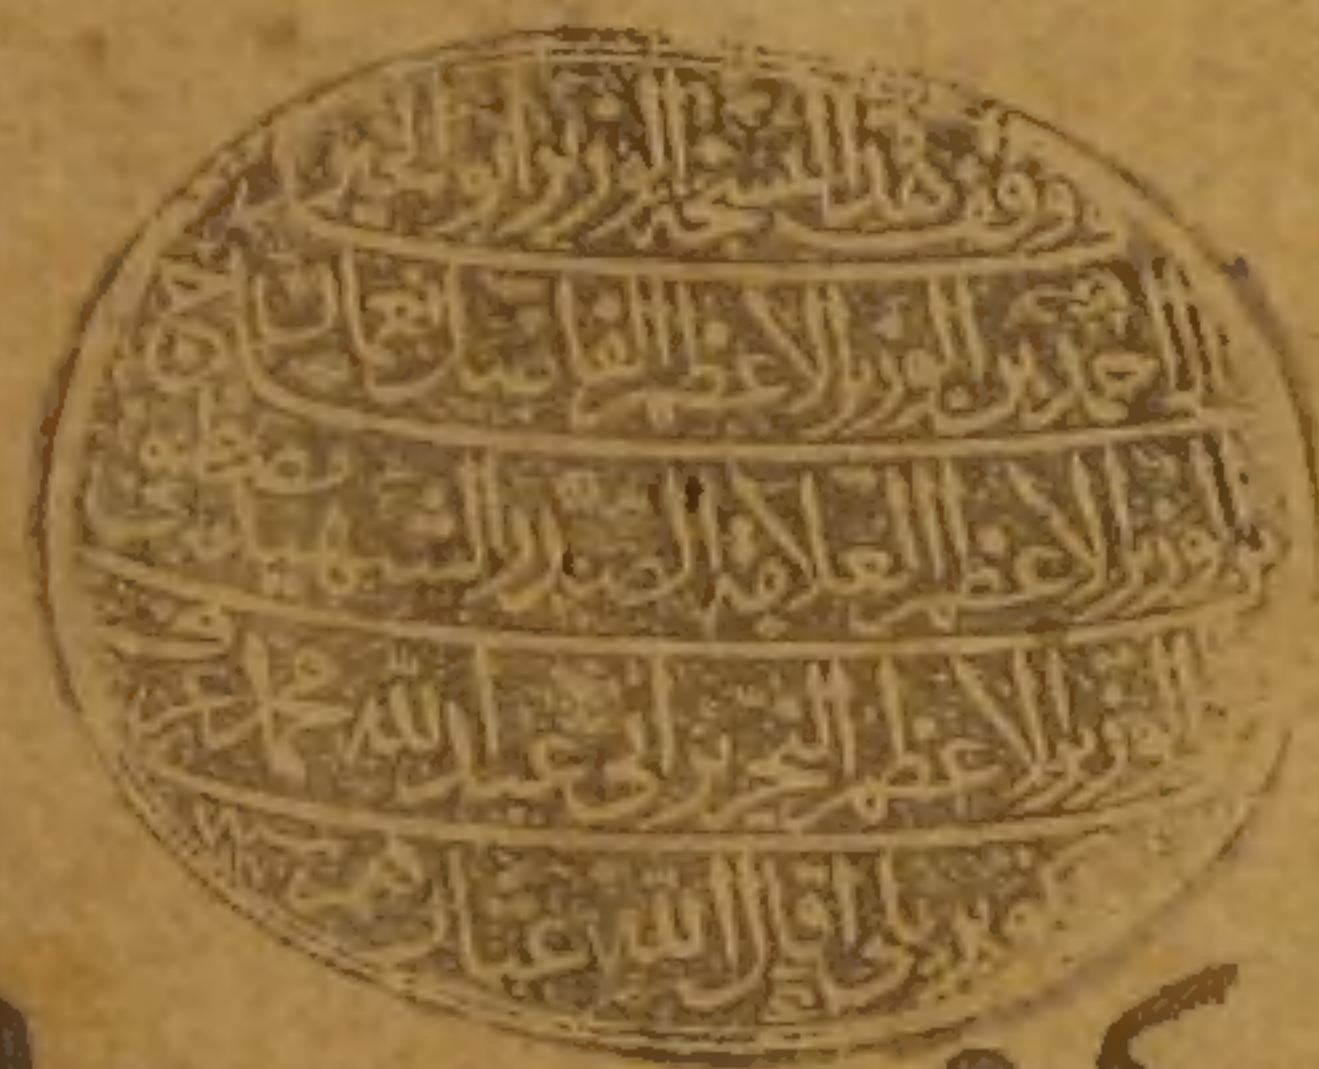 وقف هذا النسخة الوزير ابو الخير
احمد بن الوزير الاعظم الفاضل نعمان
بن الوزير الاعظم العلامة الصدر الشهيد مصطفى
بن الوزير الاعظم النحرير ابى عبد الله محمد عرف
بكوپريلى اقال الله عثارهم